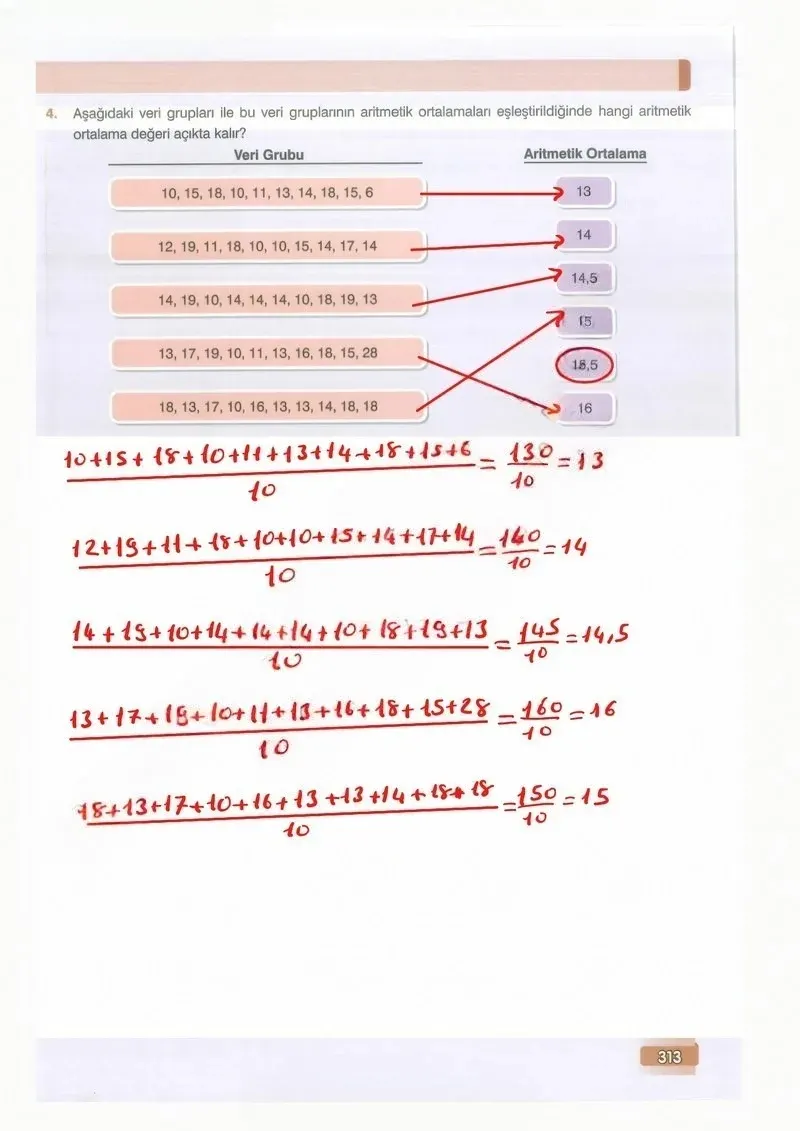 4. Aşağıdaki veri grupları ile bu veri gruplarının aritmetik ortalamaları eşleştirildiğinde hangi aritmetik
ortalama değeri açıkta kalır?
Veri Grubu Aritmetik Ortalama
10, 15, 18, 10, 11, 13, 14, 18, 15, 6 13
12, 19, 11, 18, 10, 10, 15, 14, 17, 14 14
14,5
14, 19, 10, 14, 14, 14, 10, 18, 19, 13
15
13, 17, 19, 10, 11, 13, 16, 18, 15, 28
18, 13, 17, 10, 16, 13, 13, 14, 18, 18 16
10+15+18+10+11+13+14+18+15+6 = 130 = 13
10 10
12+19+11+18+10+10+15+14+17+14 = 140 = 14
10 10
14+19+10+14+14+14+10+18+19+13 = 145 = 14,5
10 10
13+17+19+10+11+13+16+18+15+28 = 160 = 16
10 10
18+13+17+10+16+13+13+14+18+18 = 150 = 15
10 10
313